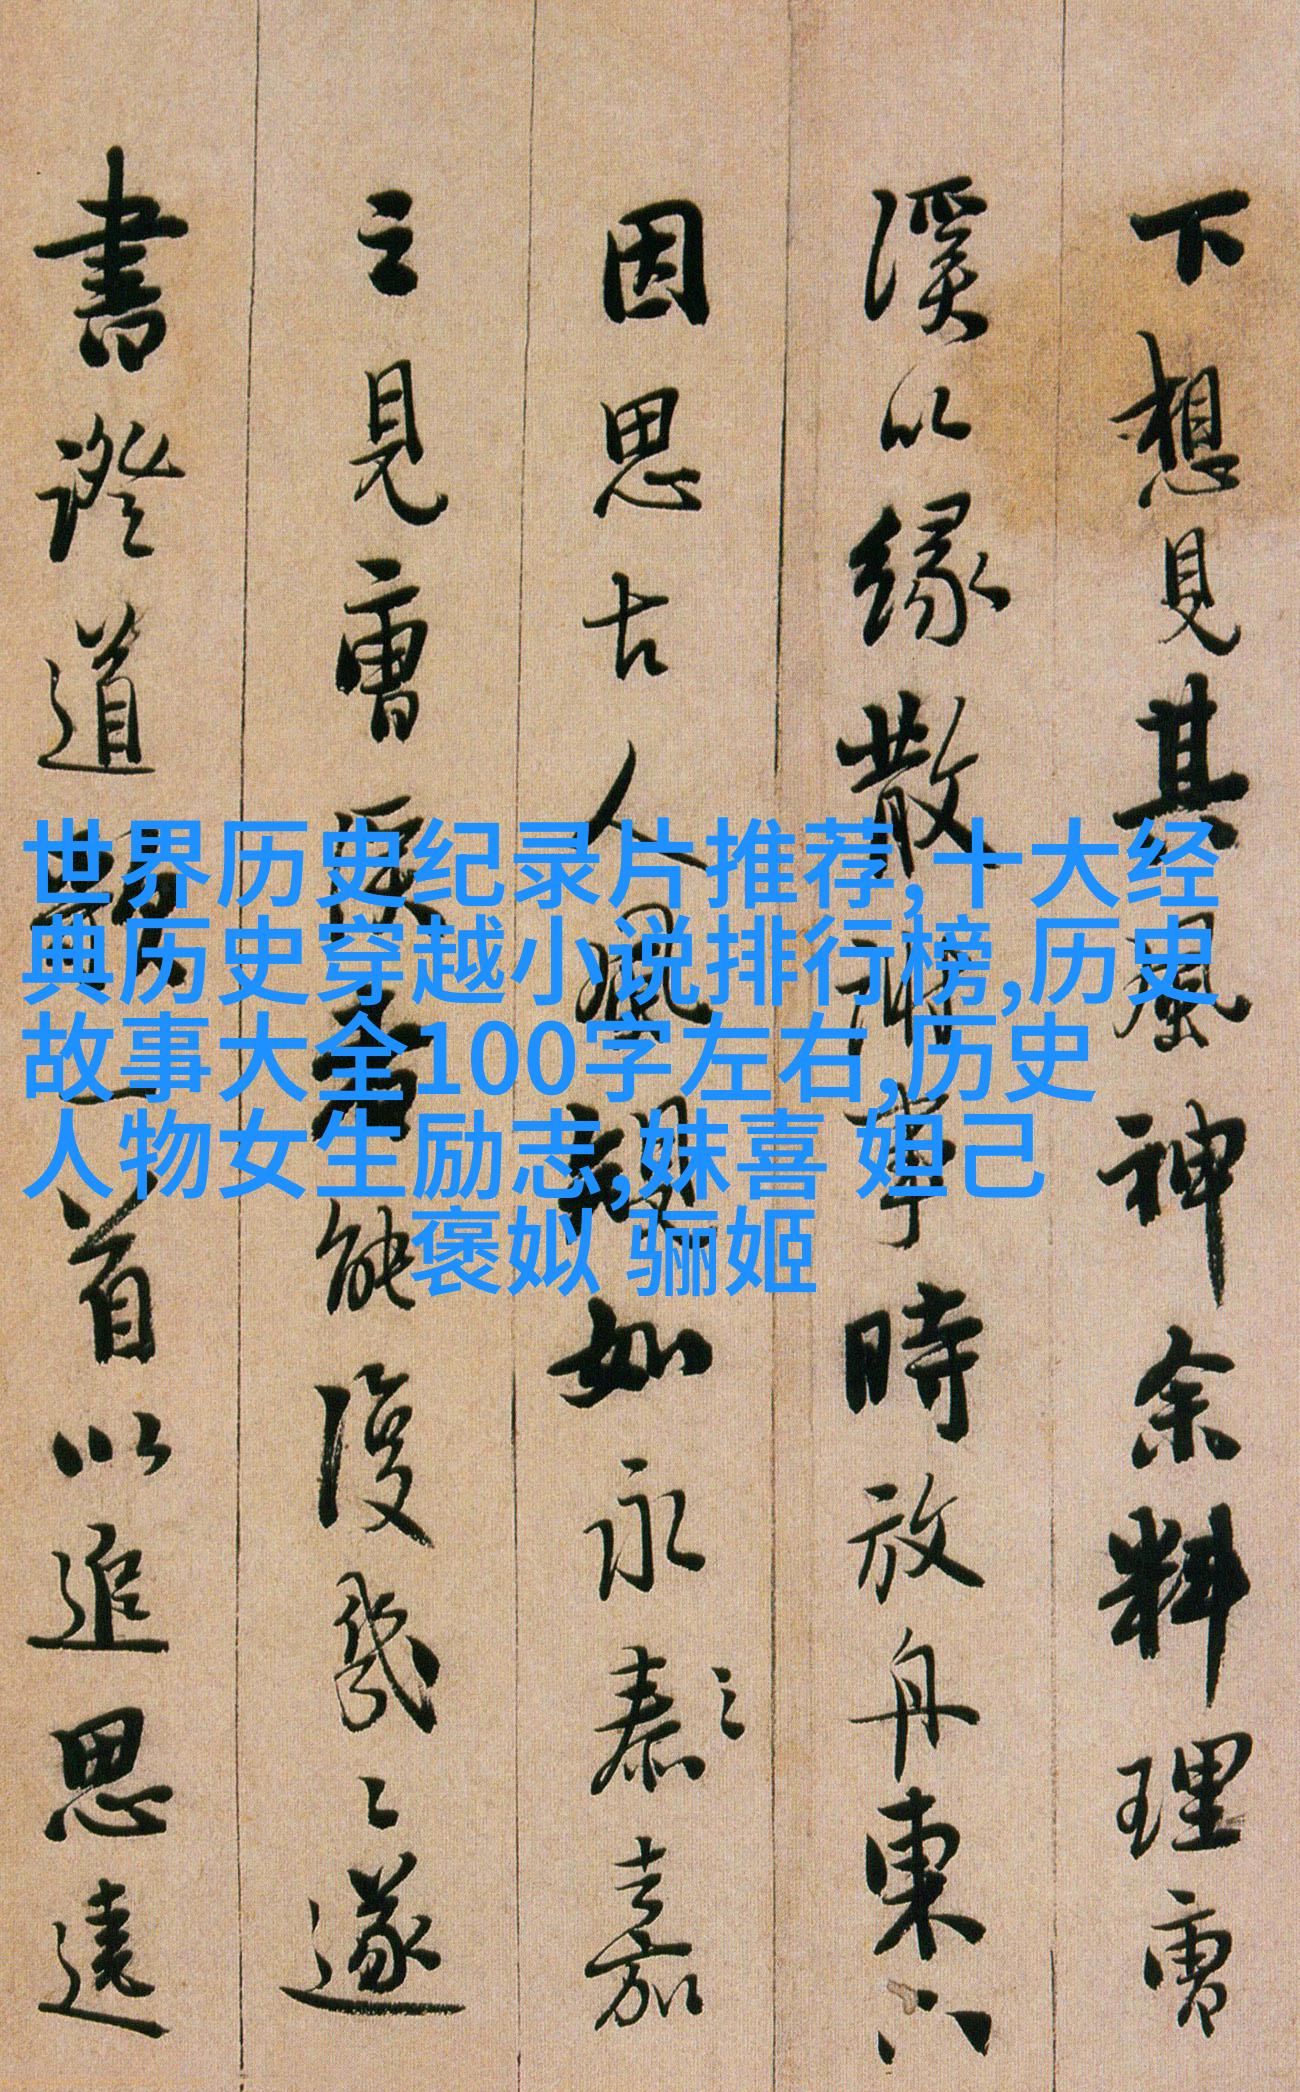 下想見其風神余料理曹
溪以緣散 事時放舟東下
因思古人風 如永泰之嘉
之見曹溪 能復幾〻遂
書證道歌一首以追思遠
世界历史纪录片推荐,十大经
典历史穿越小说排行榜,历史
故事大全100字左右,历史
人物女生励志,妺喜 妲己
褒姒 骊姬